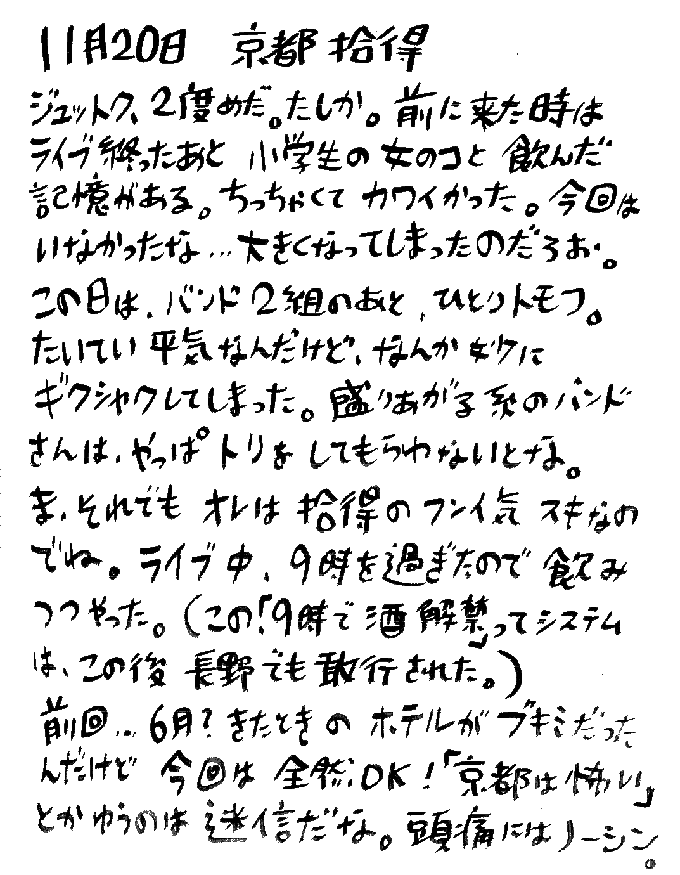 11月20日 京都 拾得
ジュットク、2度めだ。たしか。前に来た時は
ライブ終ったあと 小学生の女のコと飲んだ
記憶がある。ちっちゃくてカワイかった。今回は
いなかったな…大きくなってしまったのだろお。
この日は、バンド2組のあと、ひとりトモフ。
たいてい平気なんだけど、なんか妙に
ギクシャクしてしまった。盛りあがる系のバンド
さんは、やっぱトリをしてもらわないとな。
ま、それでも オレは拾得のフンイ気 スキなの
でね。ライブ中、9時を過ぎたので飲み
つつやった。(この「9時で酒解禁」ってシステム
は、この後長野でも敢行された。)
前回…6月?きたときの ホテルが ブキミだった
んだけど 今回は 全然OK!「京都は怖い」
とかゆうのは迷信だな。頭痛にはノーシン。